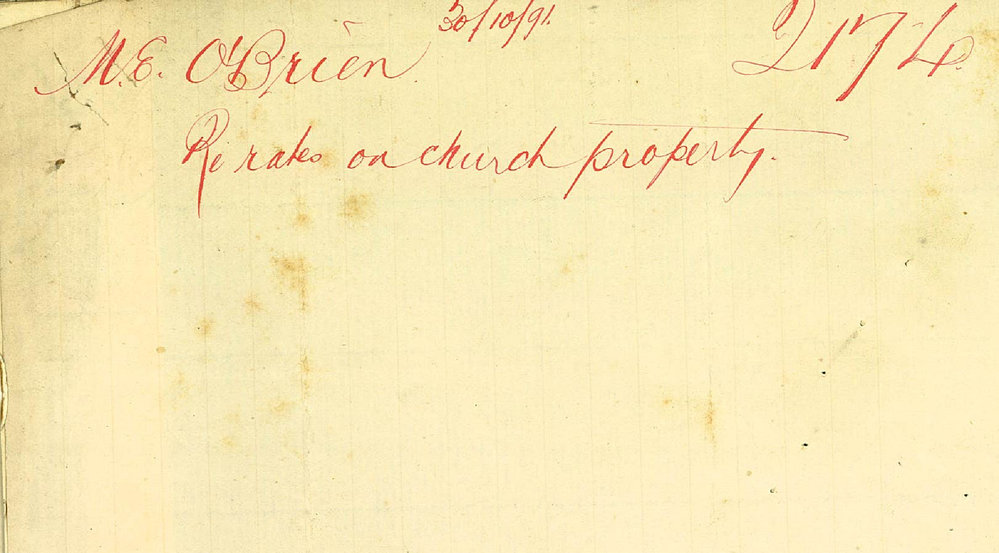 30/10/91.
M.E. O'Brien. 2174.
Re rates on church property.